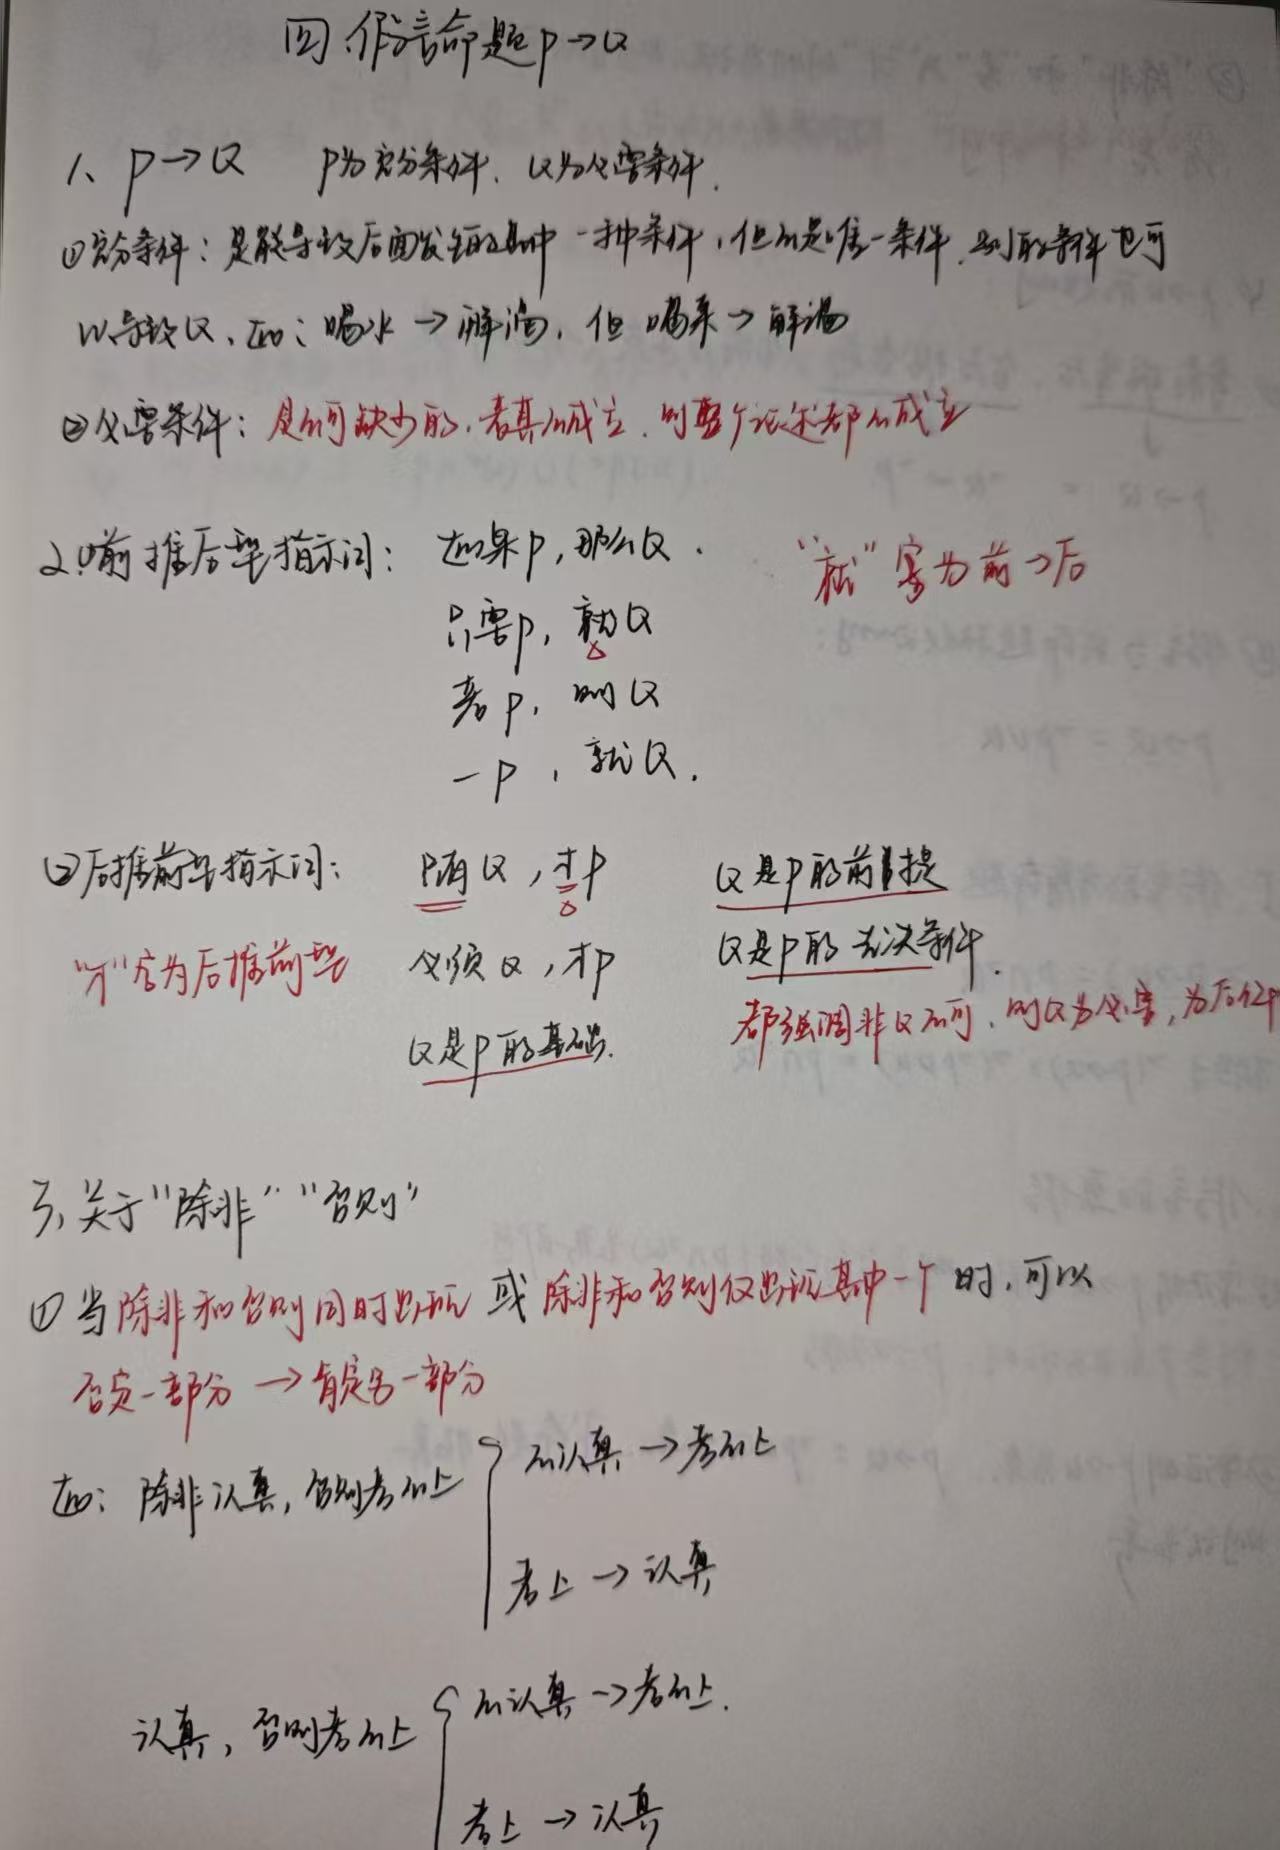 四、假言命题 P→Q
1、P→Q P为充分条件、Q为必要条件.
①充分条件：是能导致后面发生的其中一种条件，但不是唯一条件，别的条件也可
以导致Q、如：喝水→解渴，但喝茶→解渴
②必要条件：是不可缺少的，若其不成立，则整个论述都不成立
2、①前推后型指示词： 如果P，那么Q． “就”字为前→后
只要P，就Q
若P，则Q
一P，就Q．
②后推前型指示词： 只有Q，才P Q是P的前提
“才”字为后推前型 必须Q，才P Q是P的先决条件．
Q是P的基础． 都强调非Q不可，则Q为必要，为后件
3、关于“除非”“否则”
①当除非和否则同时出现或除非和否则仅出现其中一个时，可以
否定一部分→肯定另一部分
如：除非认真，否则考不上 不认真→考不上
考上→认真
认真，否则考不上 不认真→考不上．
考上→认真